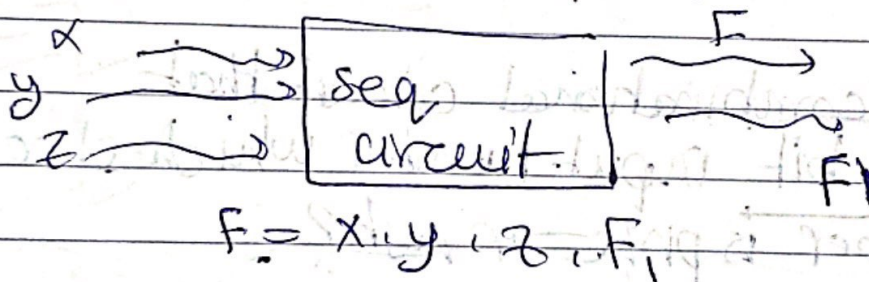 x
y
z
seq
circuit
F
F1
F = x, y, z, F1